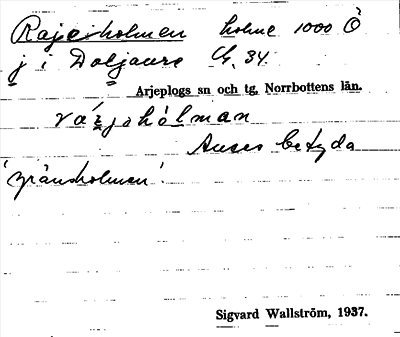 Rajeiholmen holme 1000 Ö
j i Doljaure
Arjeplogs sn och tg, Norrbottens län.
Anses betyda
'gränsholmen'.
Sigvard Wallström, 1937.